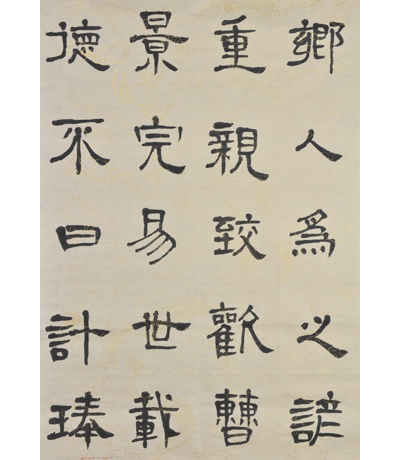 鄉人爲之諺
重親致歡曹
景完易世載
德不曰計